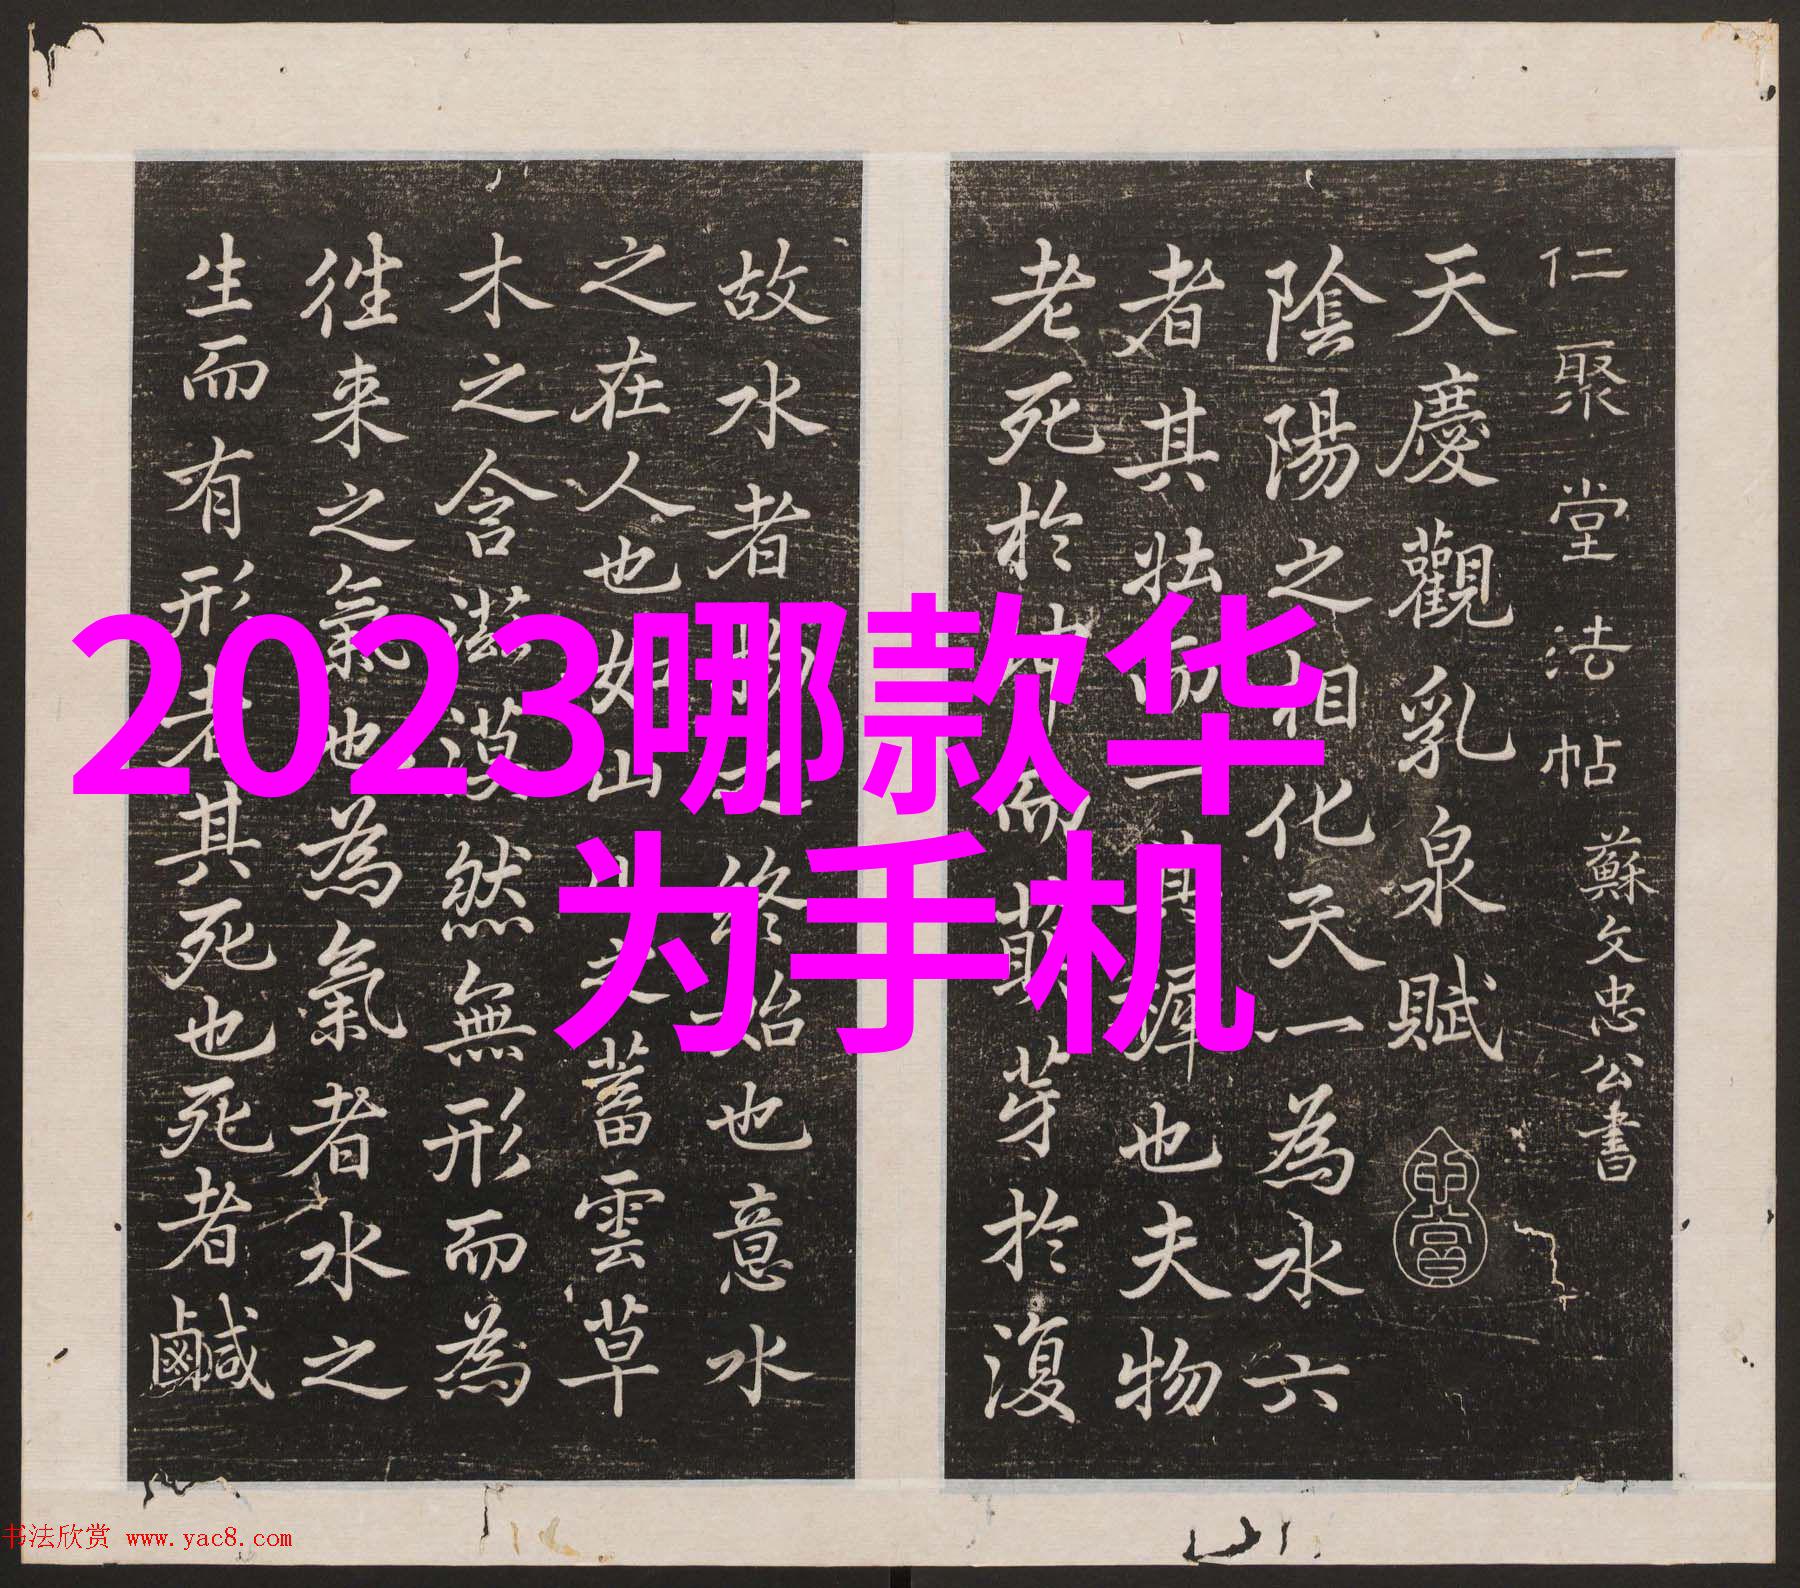 仁聚堂法帖 蘇文忠公書
天慶觀乳泉賦
陰陽之相化天一為水六
者其壯而一者其穉也夫物
老死於坤而萌芽於復
故水者物之終始也意水
之在人也如山川之蓄雲草
木之含滋漠然無形而為
徃来之氣也為氣者水之
生而有形者其死也死者鹹
2023哪款华
为手机
书法欣赏 www.yac8.com